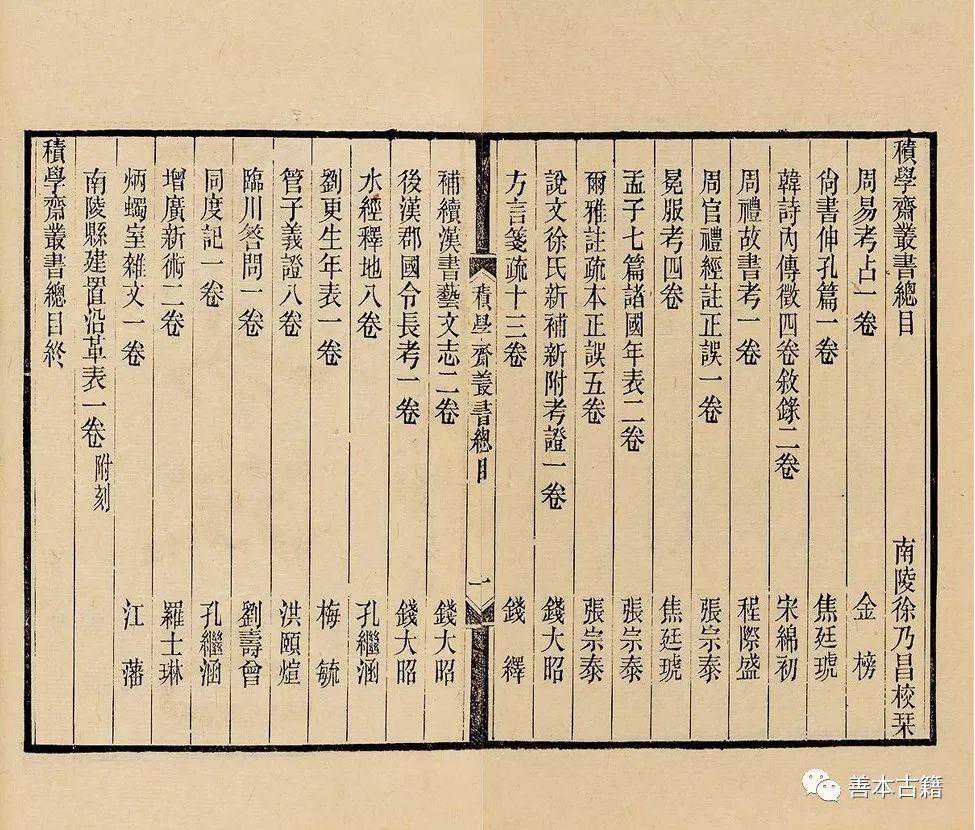 積學齋叢書總目 南陵徐乃昌校栞
周易考占一卷 金榜
尙書伸孔篇一卷 焦廷琥
韓詩內傳徵四卷敘錄二卷 宋綿初
周禮故書考一卷 程際盛
周官禮經註正誤一卷 張宗泰
冕服考四卷 焦廷琥
孟子七篇諸國年表二卷 張宗泰
爾雅註疏本正誤五卷 張宗泰
說文徐氏新補新附考證一卷 錢大昭
方言箋疏十三卷 錢繹
積學齋叢書總目 一
補續漢書藝文志二卷 錢大昭
後漢郡國令長考一卷 錢大昭
水經釋地八卷 孔繼涵
劉更生年表一卷 梅毓
管子義證八卷 洪頤煊
臨川答問一卷 劉壽曾
同度記一卷 孔繼涵
增廣新術二卷 羅士琳
炳蠋室雜文一卷 江藩
南陵縣建置沿革表一卷 附刻
積學齋叢書總目終
善本古籍